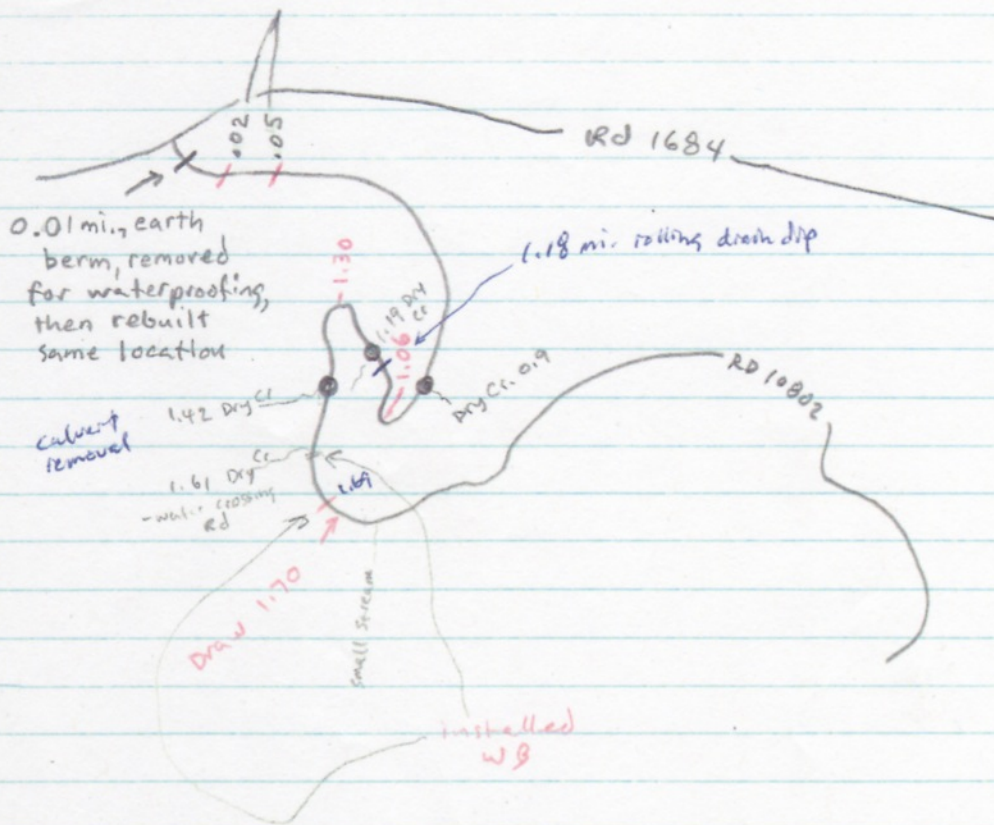 .02
.05
Rd 1684
0.01 mi., earth
berm, removed
for waterproofing,
then rebuilt
same location
1.18 mi. rolling drain dip
1.30
1.19 Dry
Cr
1.06
Dry Cr. 0.9
RD 10802
1.42 Dry Cr
Culvert
removal
1.61 Dry Cr
-water crossing
Rd
1.69
Draw 1.70
Small Stream
installed
WB